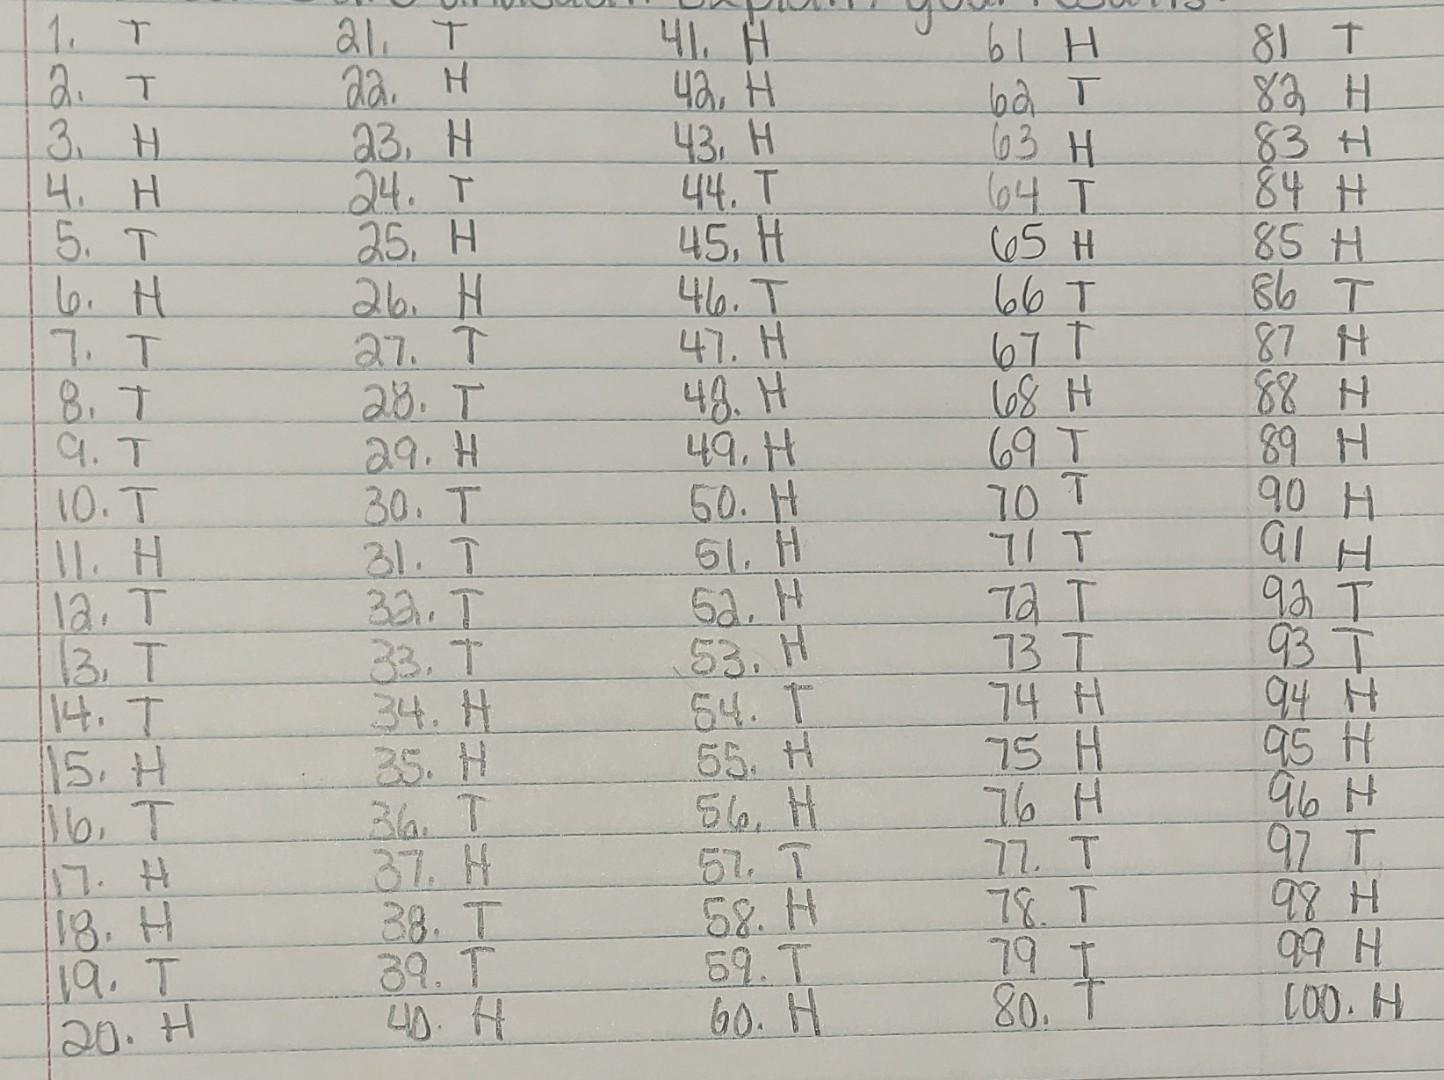 explain your results.
1. T 21. T 41. H 61 H 81 T
2. T 22. H 42. H 62 T 82 H
3. H 23. H 43. H 63 H 83 H
4. H 24. T 44. T 64 T 84 H
5. T 25. H 45. H 65 H 85 H
6. H 26. H 46. T 66 T 86 T
7. T 27. T 47. H 67 T 87 H
8. T 28. T 48. H 68 H 88 H
9. T 29. H 49. H 69 T 89 H
10. T 30. T 50. H 70 T 90 H
11. H 31. T 51. H 71 T 91 H
12. T 32. T 52. H 72 T 92 T
13. T 33. T 53. H 73 T 93 T
14. T 34. H 54. T 74 H 94 H
15. H 35. H 55. H 75 H 95 H
16. T 36. T 56. H 76 H 96 H
17. H 37. H 57. T 77. T 97 T
18. H 38. T 58. H 78. T 98 H
19. T 39. T 59. T 79 T 99 H
20. H 40. H 60. H 80. T 100. H